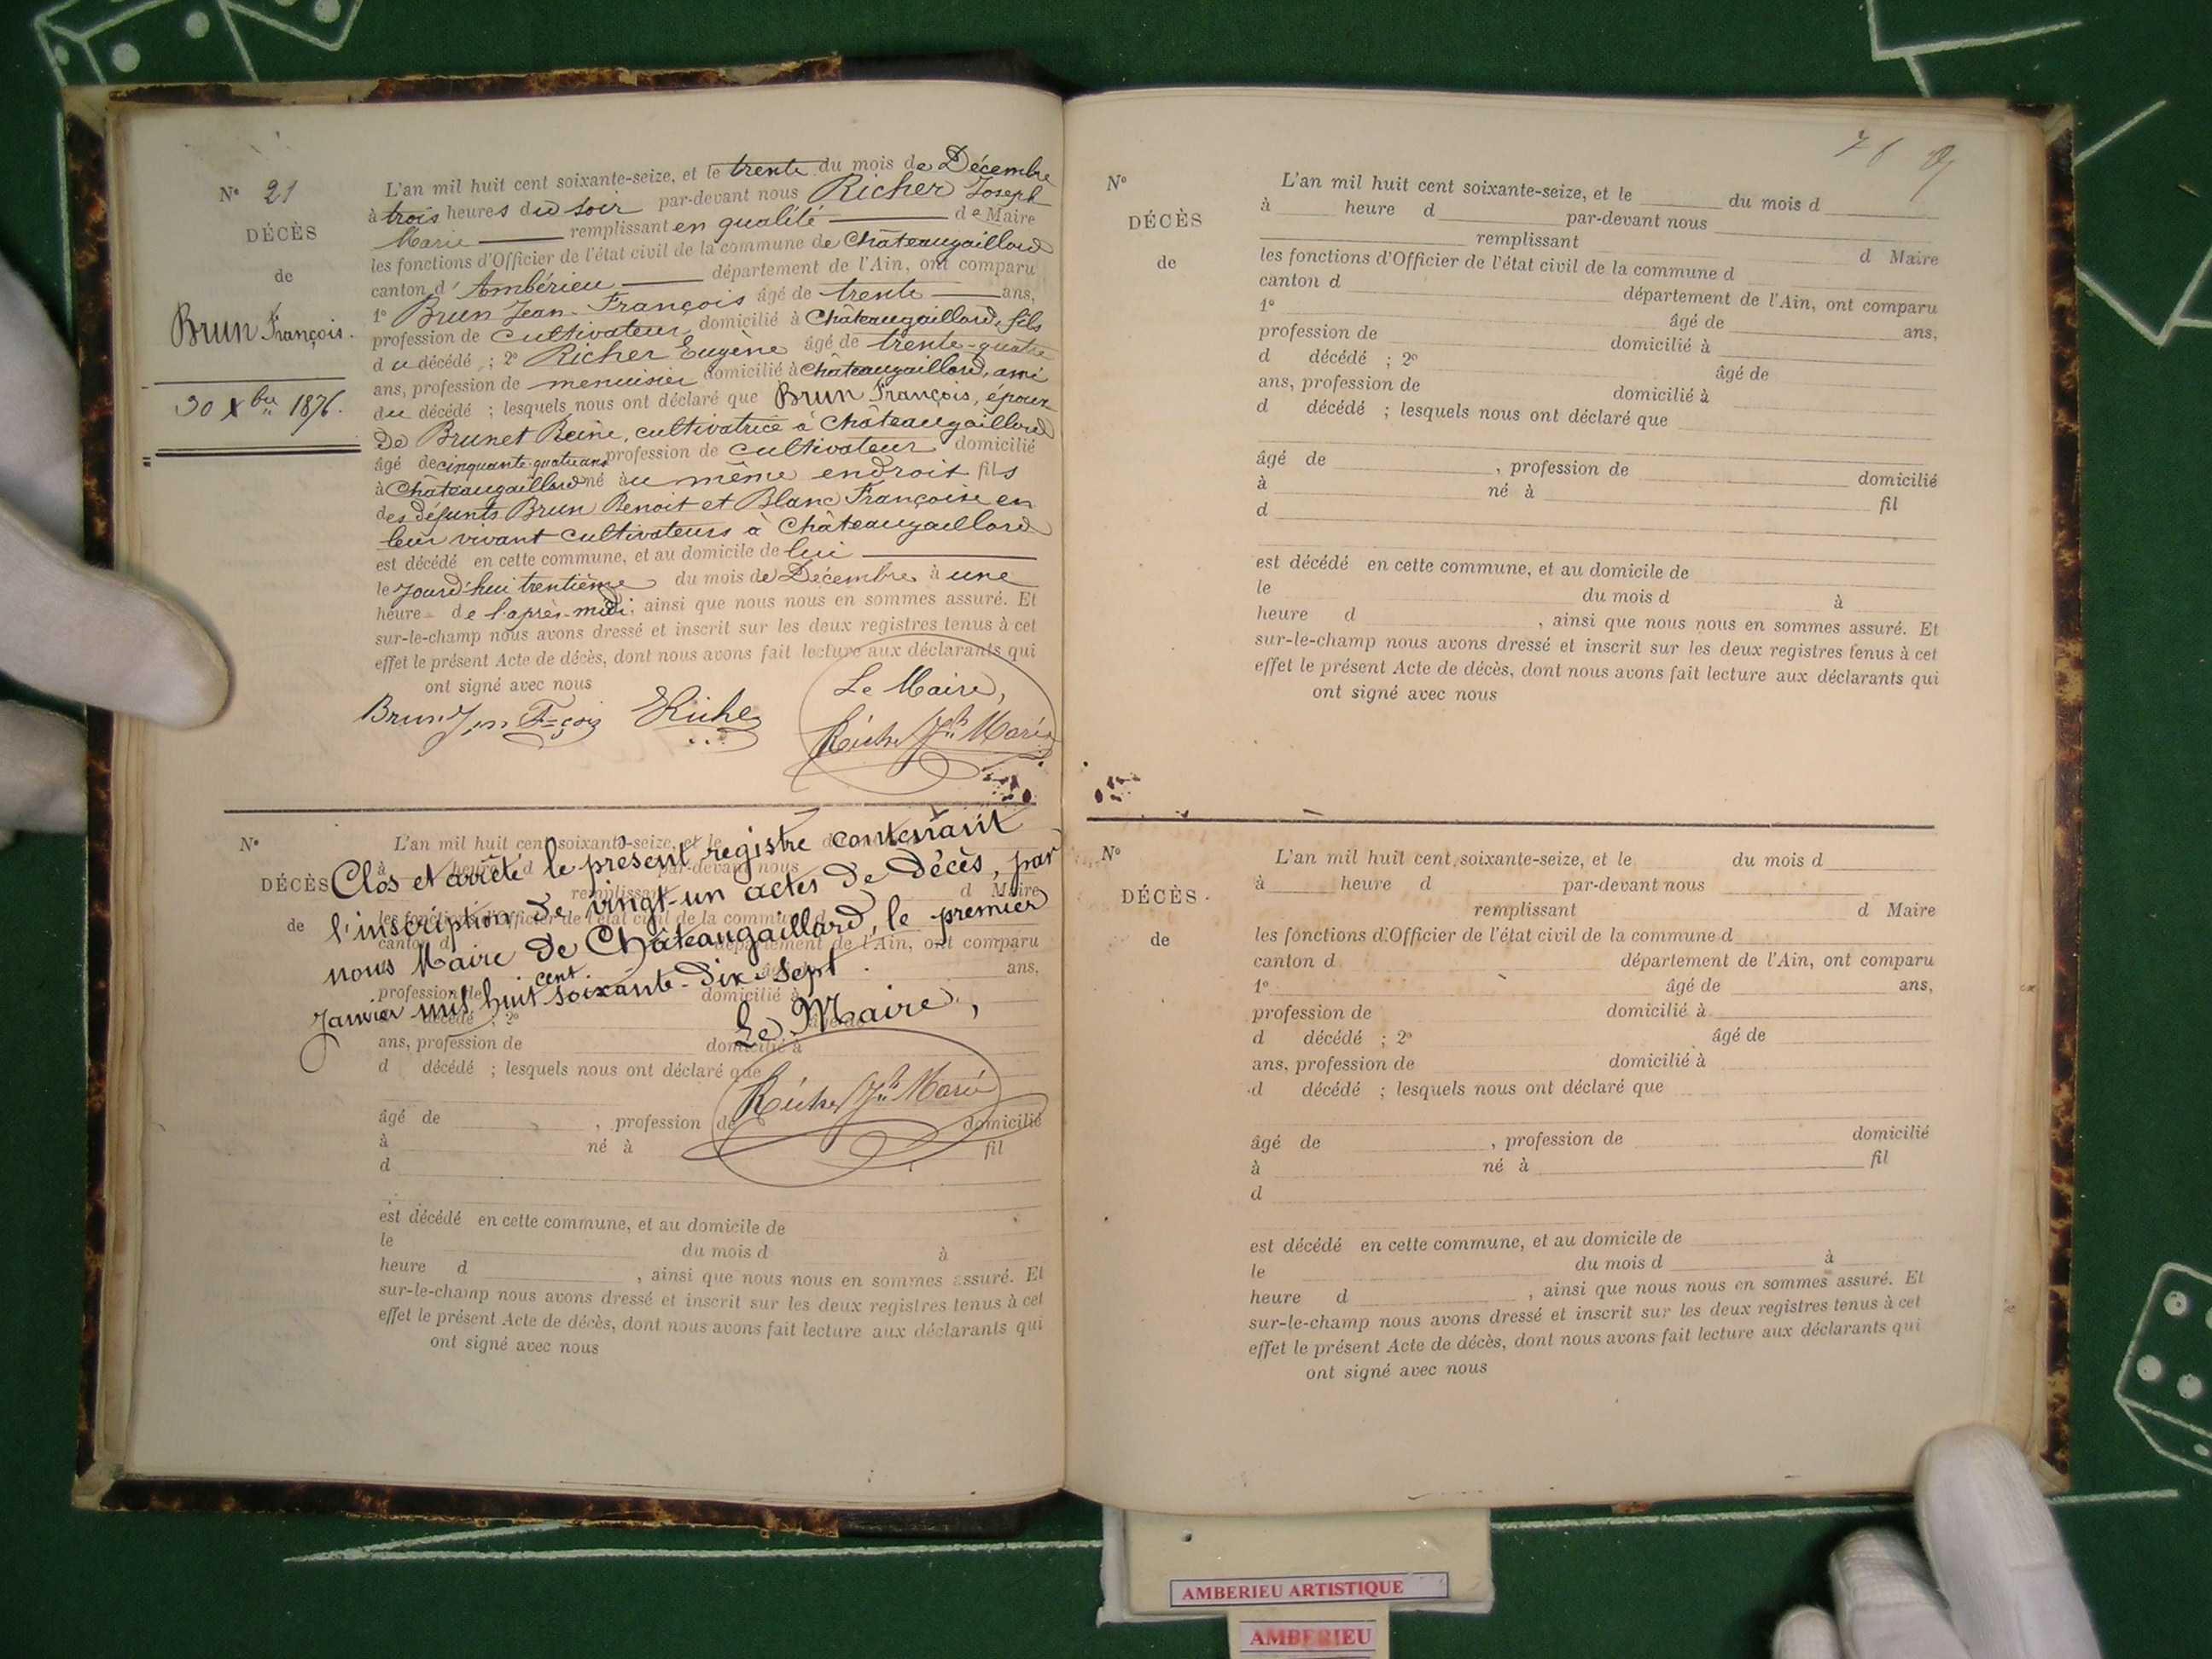 N° 21
DÉCÈS
de
Brun François.
30 Xbre 1876.
L'an mil huit cent soixante-seize, et le trente du mois de Décembre
à trois heures du soir par-devant nous Richer Joseph
Marie remplissant en qualité de Maire
les fonctions d'Officier de l'état civil de la commune de Châteaugaillard
canton d'Ambérieu département de l'Ain, ont comparu
1° Brun Jean-François âgé de trente ans,
profession de cultivateur, domicilié à Châteaugaillard, fils
du décédé ; 2° Richer Eugène âgé de trente-quatre
ans, profession de menuisier domicilié à Châteaugaillard, ami
du décédé ; lesquels nous ont déclaré que Brun François, époux
de Brunet Reine, cultivatrice à Châteaugaillard
âgé de cinquante-quatre ans profession de cultivateur domicilié
à Châteaugaillard né au même endroit fils
des défunts Brun Benoit et Blanc Françoise en
leur vivant cultivateurs à Châteaugaillard
est décédé en cette commune, et au domicile de lui
le jourd'hui trentième du mois de Décembre à une
heure de l'après-midi, ainsi que nous nous en sommes assuré. Et
sur-le-champ nous avons dressé et inscrit sur les deux registres tenus à cet
effet le présent Acte de décès, dont nous avons fait lecture aux déclarants qui
ont signé avec nous
Le Maire,
Brun Jean Fçois ERicher Richer Jph Marie
N°
DÉCÈS
de
L'an mil huit cent soixante-seize, et le
à heure d par-devant nous
remplissant d Maire
les fonctions d'Officier de l'état civil de la commune d
canton d département de l'Ain, ont comparu
ans,
profession de domicilié à
décédé ; 2° âgé de
ans, profession de domicilié à
d décédé ; lesquels nous ont déclaré que
âgé de , profession de domicilié
à né à fil
d
est décédé en cette commune, et au domicile de
le du mois d à
heure d , ainsi que nous nous en sommes assuré. Et
sur-le-champ nous avons dressé et inscrit sur les deux registres tenus à cet
effet le présent Acte de décès, dont nous avons fait lecture aux déclarants qui
ont signé avec nous
Clos et arrêté le présent registre contenant
l'inscription de vingt-un actes de décès, par
nous Maire de Châteaugaillard, le premier
Janvier mil huit cent soixante-dix-sept.
Le Maire,
Richer Jph Marie
76
N°
DÉCÈS
de
L'an mil huit cent soixante-seize, et le du mois d
à heure d par-devant nous
remplissant d Maire
les fonctions d'Officier de l'état civil de la commune d
canton d département de l'Ain, ont comparu
1° âgé de ans,
profession de domicilié à
d décédé ; 2° âgé de
ans, profession de domicilié à
d décédé ; lesquels nous ont déclaré que
âgé de , profession de domicilié
à né à fil
d
est décédé en cette commune, et au domicile de
le du mois d à
heure d , ainsi que nous nous en sommes assuré. Et
sur-le-champ nous avons dressé et inscrit sur les deux registres tenus à cet
effet le présent Acte de décès, dont nous avons fait lecture aux déclarants qui
ont signé avec nous
N°
DÉCÈS
de
L'an mil huit cent soixante-seize, et le du mois d
à heure d par-devant nous
remplissant d Maire
les fonctions d'Officier de l'état civil de la commune d
canton d département de l'Ain, ont comparu
1° âgé de ans,
profession de domicilié à
d décédé ; 2° âgé de
ans, profession de domicilié à
d décédé ; lesquels nous ont déclaré que
âgé de , profession de domicilié
à né à fil
d
est décédé en cette commune, et au domicile de
le du mois d à
heure d , ainsi que nous nous en sommes assuré. Et
sur-le-champ nous avons dressé et inscrit sur les deux registres tenus à cet
effet le présent Acte de décès, dont nous avons fait lecture aux déclarants qui
ont signé avec nous
AMBERIEU ARTISTIQUE
AMBERIEU